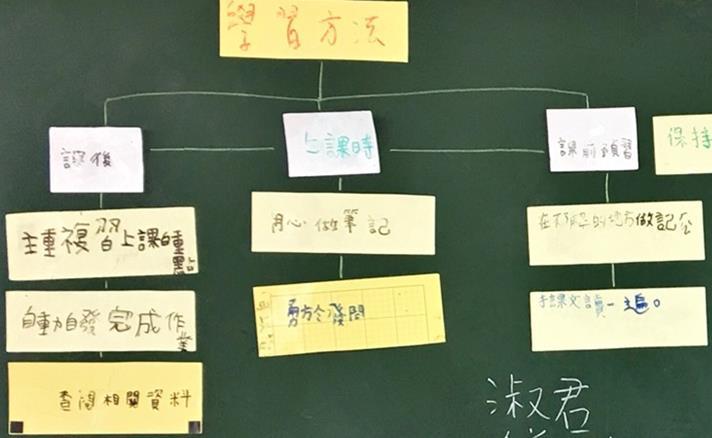 學習方法
課後
上課時
課前預習
保持
主重複習上課時重點
用心做筆記
在不解的地方做記公
自動自發完成作業
勇於發問
課文讀一遍。
查閱相關資料
淑君